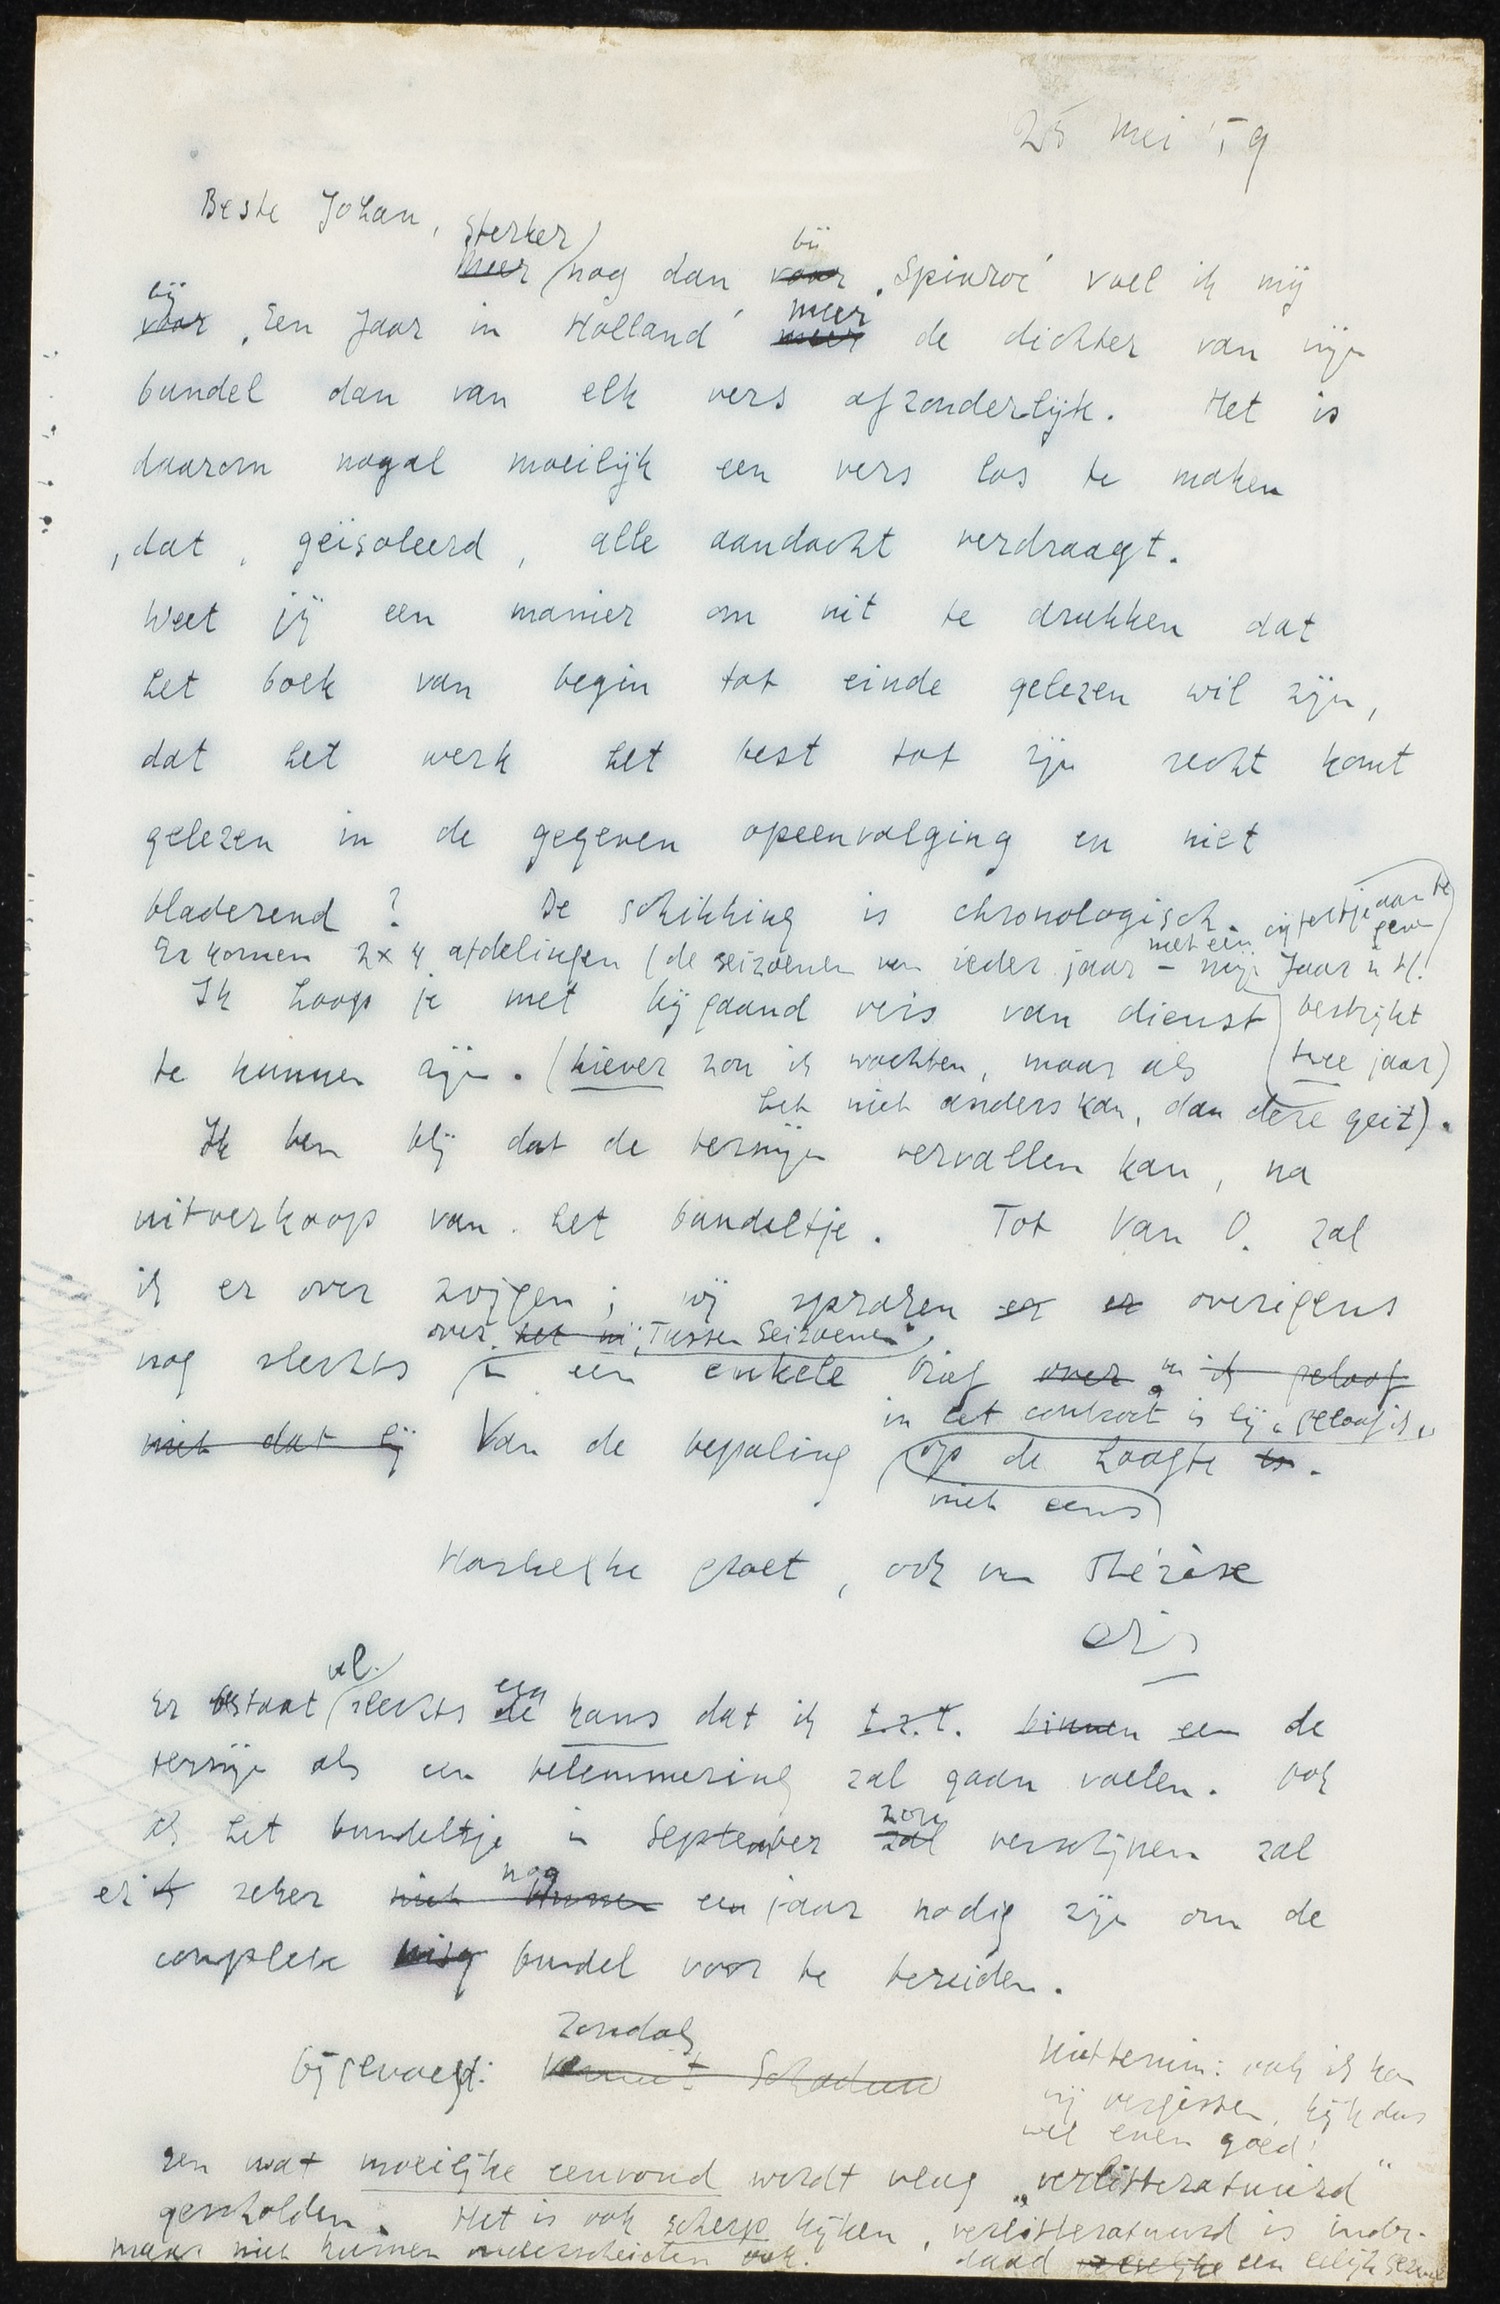 25 mei '59
Beste Johan,
sterker
bij
meer nog dan voor 'Spinroc' voel ik mij
bij
meer
voor 'Een Jaar in Holland' meer de dichter van mijn
bundel dan van elk vers afzonderlijk. Het is
daarom nogal moeilijk een vers los te maken
, dat , geïsoleerd , alle aandacht verdraagt.
Weet jij een manier om uit te drukken dat
het boek van begin tot einde gelezen wil zijn,
dat het werk het best tot zijn recht komt
gelezen in de gegeven opeenvolging en niet
bladerend ? De schikking is chronologisch.
met een cijfertje aan te geven
Er komen 2 x 4 afdelingen (de seizoenen van ieder jaar – mijn Jaar in H.
Ik hoop je met bijgaand vers van dienst
bestrijkt
te kunnen zijn. (liever zou ik wachten, maar als
twee jaar)
het niet anders kan, dan deze geit).
Ik ben blij dat de termijn vervallen kan, na
uitverkoop van het bundeltje. Tot Van O. zal
ik er over zwijgen ; wij spraken er er overigens
over het in 'Tussen Seizoenen'
nog slechts in een enkele brief over en ik geloof
in het contract is hij "geloof ik"
niet dat hij Van de bepaling op de hoogte is.
niet eens
Hartelijke groet, ook van Thérèse
Chris
wel
een
Er bestaat slechts de kans dat ik t.z.t. binnen een de
termijn als een belemmering zal gaan voelen. Ook
zou
als het bundeltje in September zal verschijnen zal
nog
er ik zeker niet binnen een jaar nodig zijn om de
complete bundel voor te bereiden.
Zondag
bijgevoegd: Schaduw
Niettemin: ook ik kan
mij vergissen, kijk dus
wel even goed!
een wat moeilijke eenvoud wordt vlug "verlitteratuurd"
gescholden. Het is ook scherp kijken, verlitteratuurd is inder-
maar niet kunnen onderscheiden ook. daad een lelijk gezwel